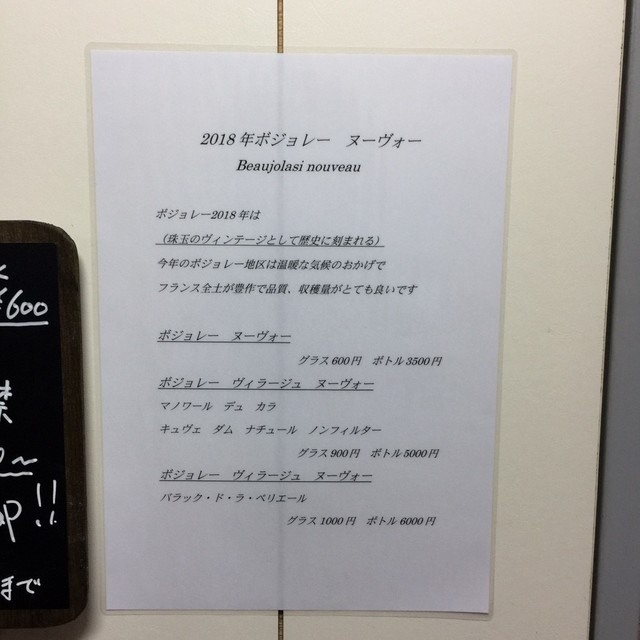 2018年ボジョレー　ヌーヴォー
Beaujolasi nouveau
ボジョレー2018年は
（珠玉のヴィンテージとして歴史に刻まれる）
今年のボジョレー地区は温暖な気候のおかげで
フランス全土が豊作で品質、収穫量がとても良いです
ボジョレー　ヌーヴォー
グラス600円　ボトル3500円
ボジョレー　ヴィラージュ　ヌーヴォー
マノワール　デュ　カラ
キュヴェ　ダム　ナチュール　ノンフィルター
グラス900円　ボトル5000円
ボジョレー　ヴィラージュ　ヌーヴォー
バラック・ド・ラ・ペリエール
グラス1000円　ボトル6000円
¥600
!!
まで